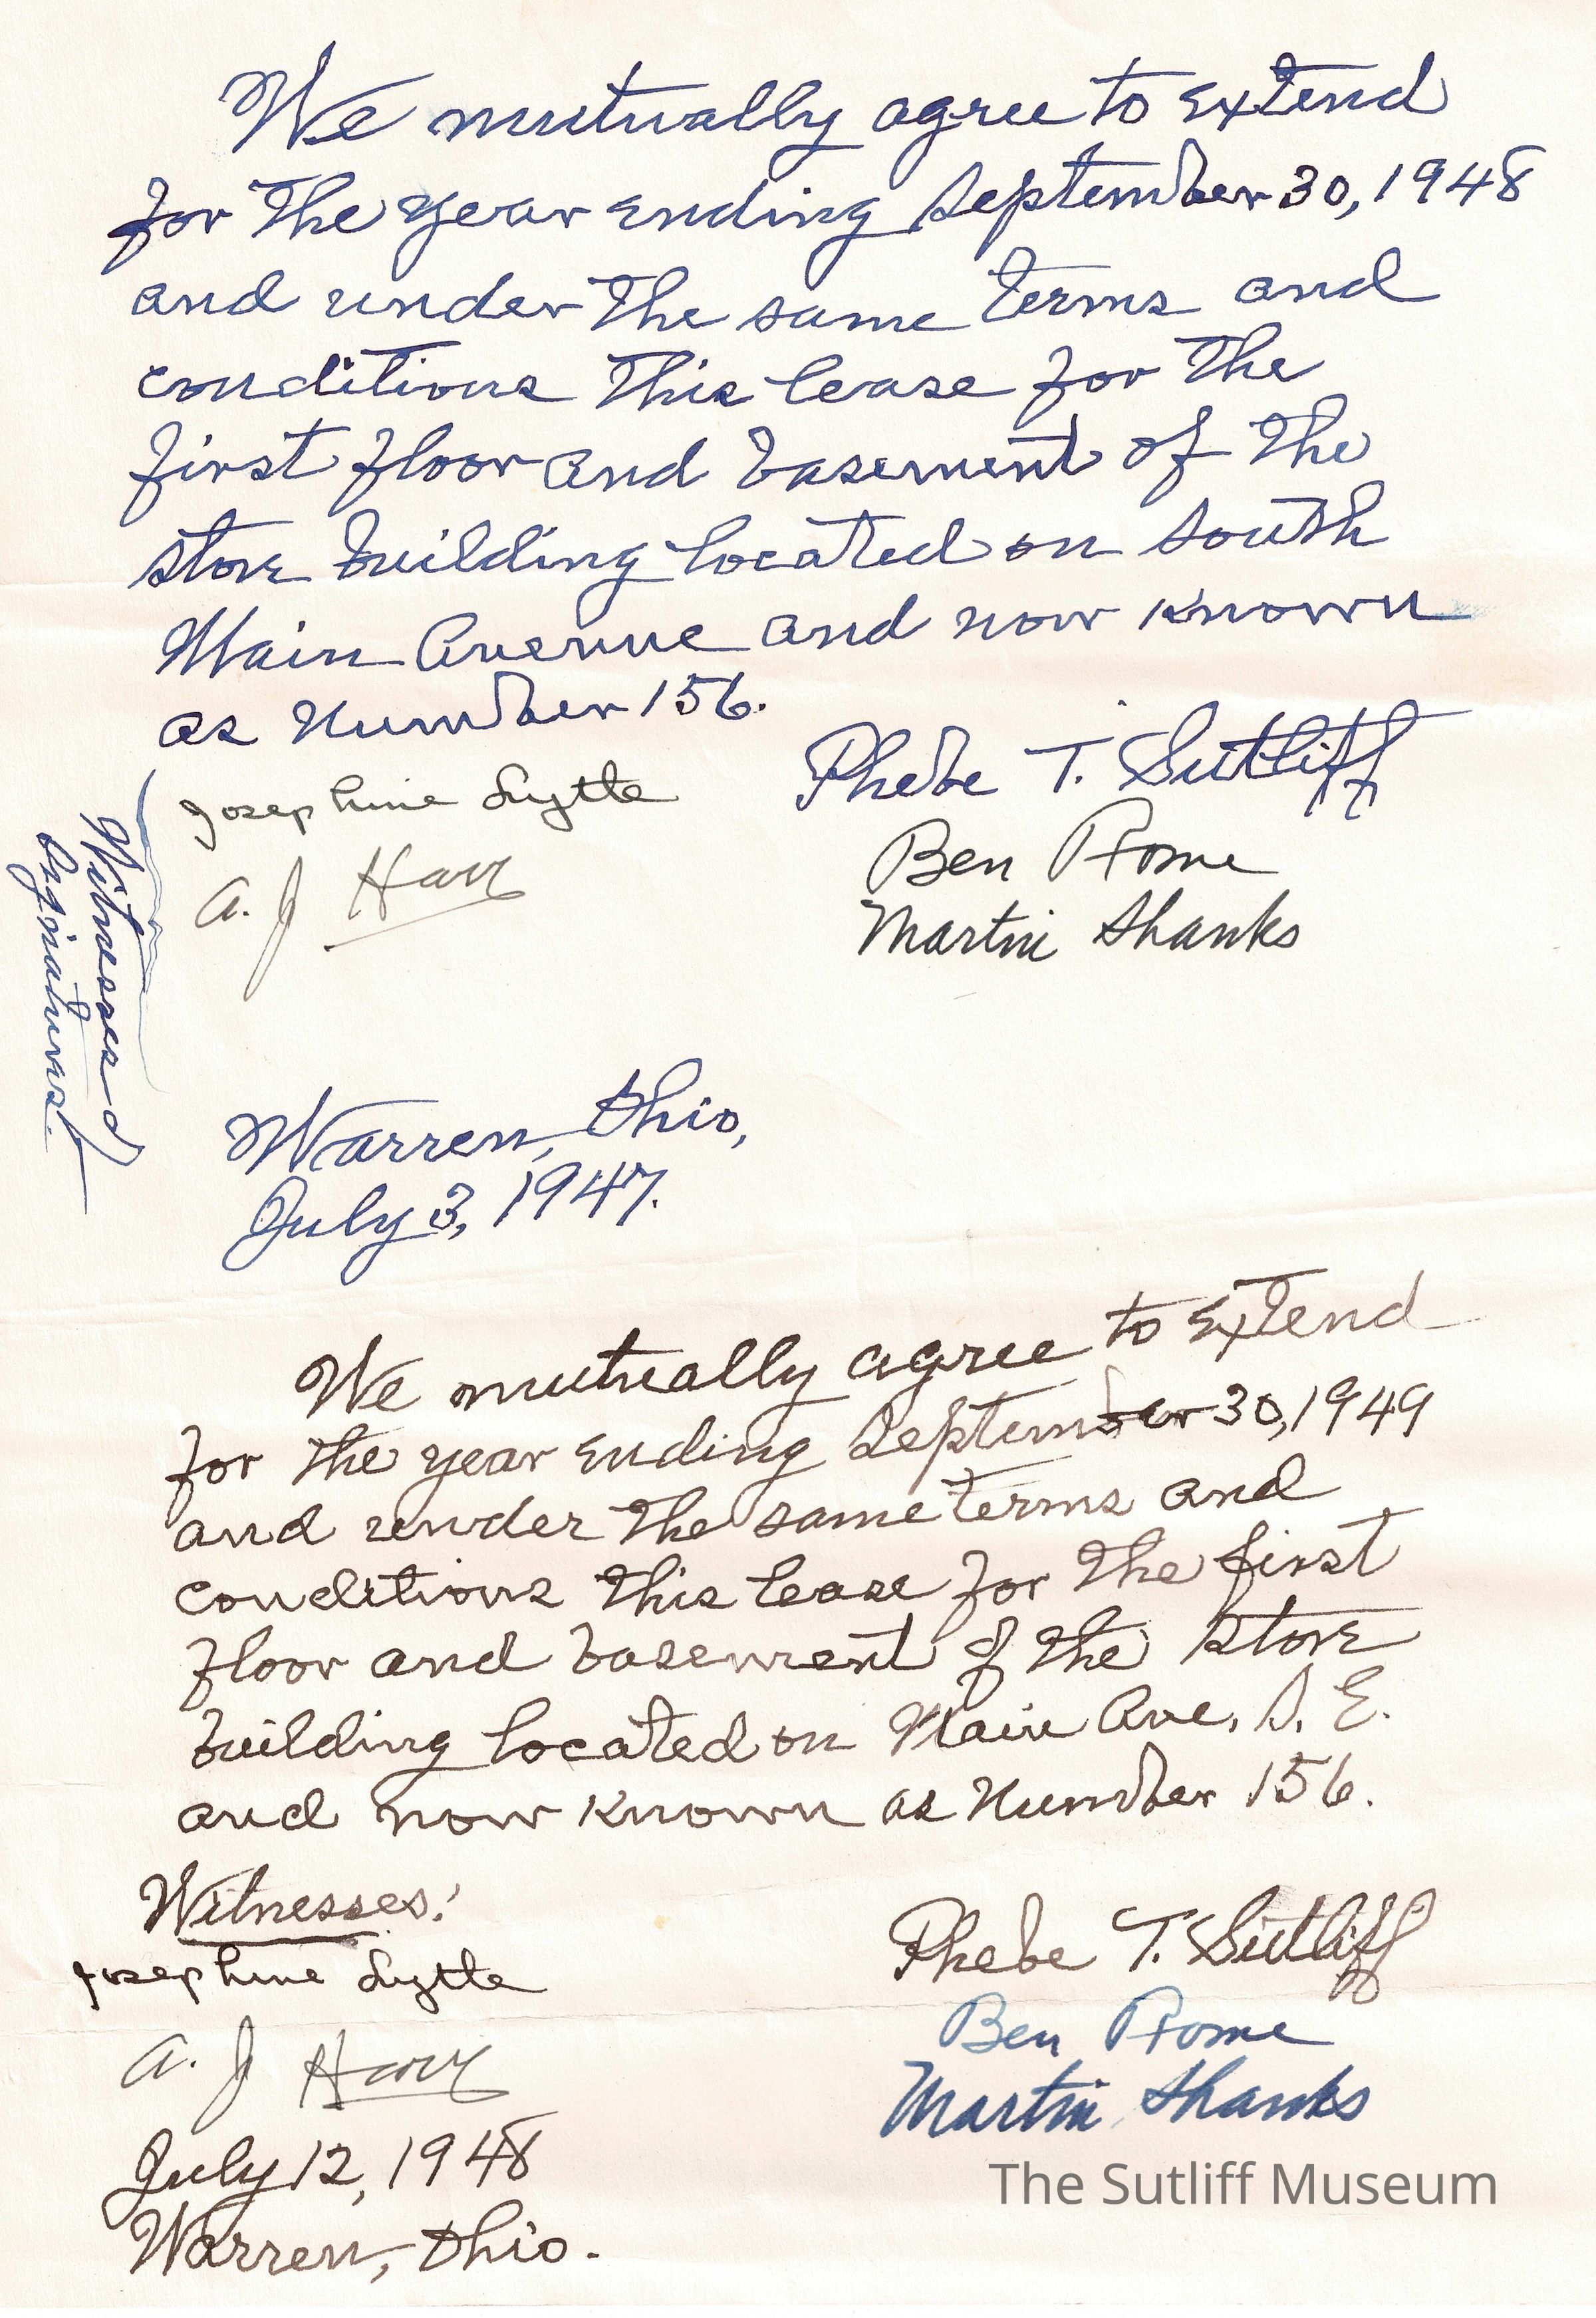 We mutually agree to extend
for the year ending September 30, 1948
and under the same terms and
conditions this lease for the
first floor and basement of the
store building located on South
Main Avenue and now known
as Number 156.
Phebe T. Sutliff
Josephine Lytle
Ben Rome
A. J. Harr
Martin Shanks
Witnessed
Signatures.
Warren, Ohio,
July 3, 1947.
We mutually agree to extend
for the year ending September 30, 1949
and under the same terms and
conditions this lease for the first
floor and basement of the store
building located on Main Ave. S. E.
and now known as Number 156.
Witnesses:
Phebe T. Sutliff
Josephine Lytle
Ben Rome
A. J. Harr
Martin Shanks
July 12, 1948
Warren, Ohio.
The Sutliff Museum